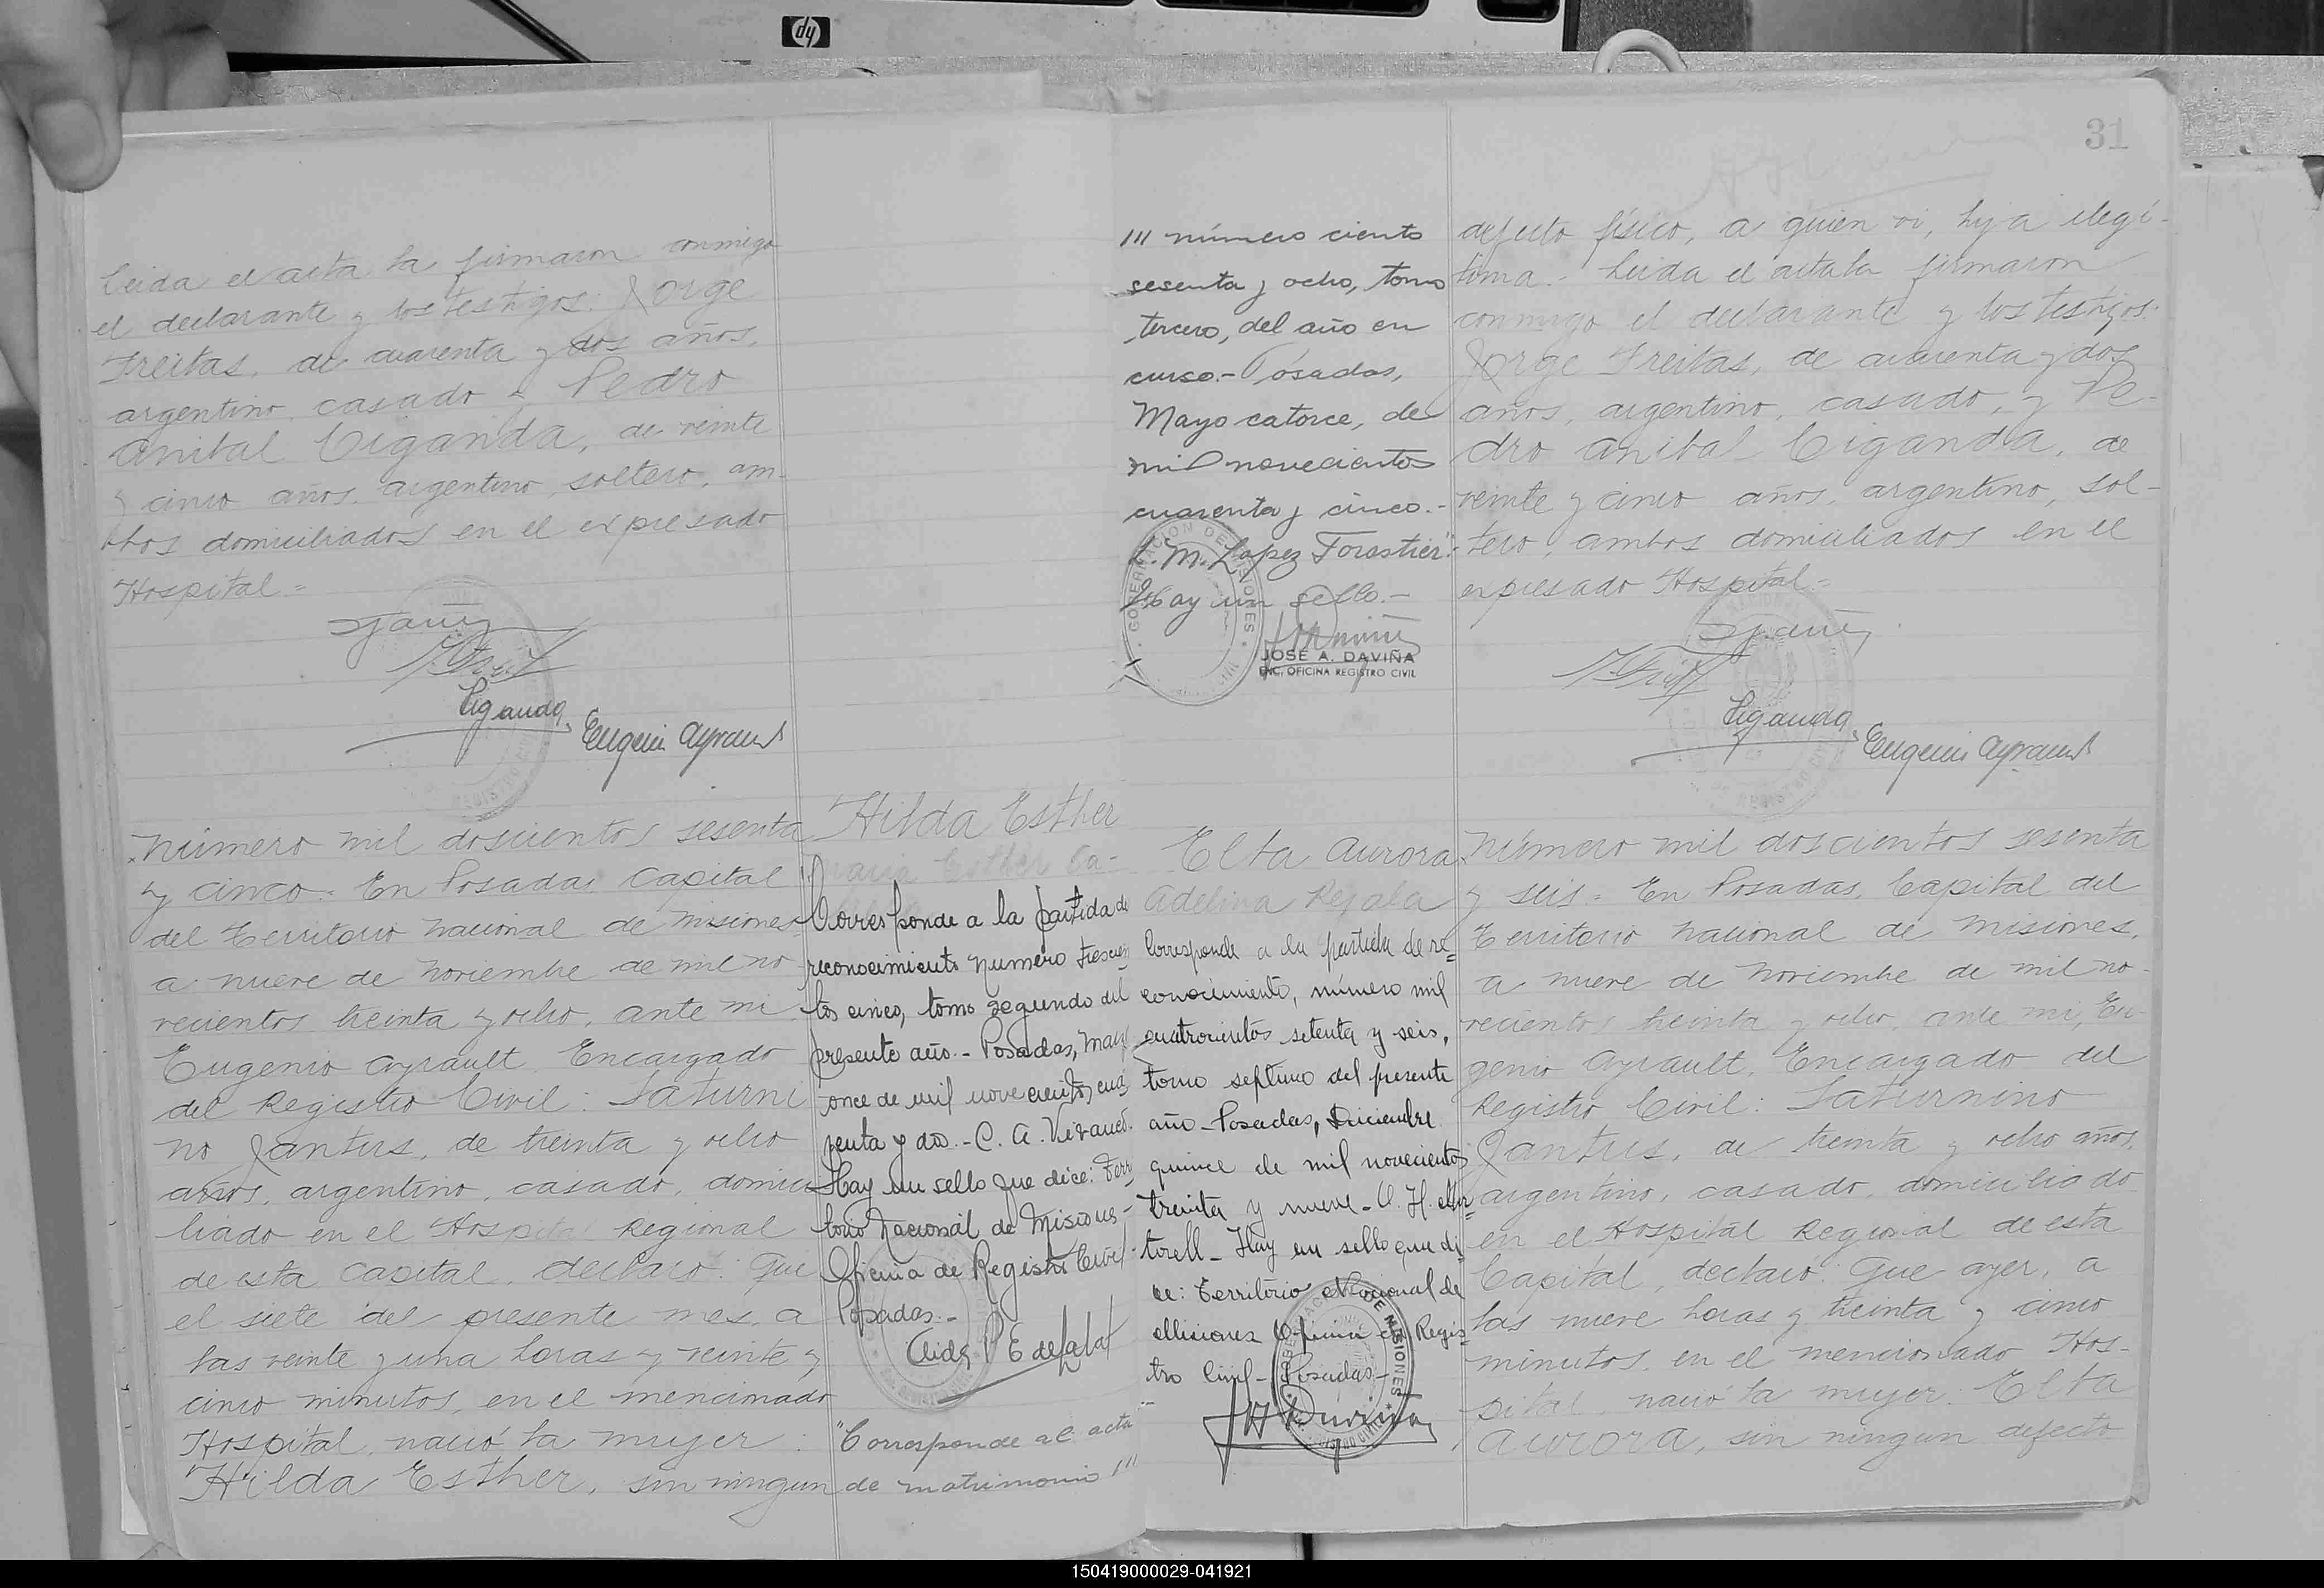 hp
leida el acta la firmaron conmigo
el declarante y los testigos: Jorge
Freitas, de cuarenta y dos años,
argentino, casado y Pedro
Anibal Ciganda, de veinte
y cinco años, argentino, soltero, am-
bos domiciliados en el expresado
Hospital=
Ciganda
Eugenio Ayrault
Número mil doscientos sesenta
y cinco= En Posadas Capital
del Territorio Nacional de Misiones
a nueve de Noviembre de mil no-
vecientos treinta y ocho, ante mi
Eugenio Ayrault Encargado
del Registro Civil: Saturni
no Jantus, de treinta y ocho
años, argentino, casado, domici
liado en el Hospital Regional
de esta Capital, declaró: Que
el siete del presente mes, a
las veinte y una horas y veinte y
cinco minutos, en el mencionado
Hospital, nació la mujer:
Hilda Esther, sin ningun
Hilda Esther
Maria Esther
Corresponde a la partida de
reconocimiento número trescien
tos cinco, tomo segundo del
presente año.- Posadas, Mayo
once de mil novecientos cua
renta y dos.- C. A.
Hay un sello que dice: Terri
torio Nacional de Misiones-
Oficina de Registro Civil-
Posadas.-
"Corresponde al acta
de matrimonio ///
/// número ciento
sesenta y ocho, tomo
tercero, del año en
curso.- Posadas,
Mayo catorce, de
mil novecientos
cuarenta y cinco.-
L. M. Lopez Forastier".-
Hay un sello.-
GOBERNACION DE MISIONES
JOSÉ A. DAVIÑA
ENC. OFICINA REGISTRO CIVIL
Elba Aurora
Adelina Rejala
Corresponde a la partida de re=
conocimiento, número mil
cuatrocientos setenta y seis,
tomo septimo del presente
año- Posadas, Diciembre
quince de mil novecientos
treinta y nueve- C. H. Mar=
torell- Hay un sello que di=
ce: Territorio Nacional de
Misiones Oficina de Regis=
tro Civil- Posadas-
31
defecto físico, a quien vi, hija ilegi-
tima.- Leida el acta la firmaron
conmigo el declarante y los testigos:
Jorge Freitas, de cuarenta y dos
años, argentino, casado, y Pe-
dro Anibal Ciganda, de
veinte y cinco años, argentino, sol-
tero, ambos domiciliados en el
expresado Hospital=
Ciganda
Eugenio Ayrault
Número mil doscientos sesenta
y seis= En Posadas, Capital del
Territorio Nacional de Misiones,
a nueve de Noviembre de mil no-
vecientos treinta y ocho ante mi, Eu-
genio Ayrault, Encargado del
Registro Civil: Saturnino
Jantus, de treinta y ocho años,
argentino, casado, domiciliado
en el Hospital Regional de esta
Capital, declaró: Que ayer, a
las nueve horas y treinta y cinco
minutos, en el mencionado Hos-
pital, nació la mujer: Elba
Aurora, sin ningun defecto
150419000029-041921